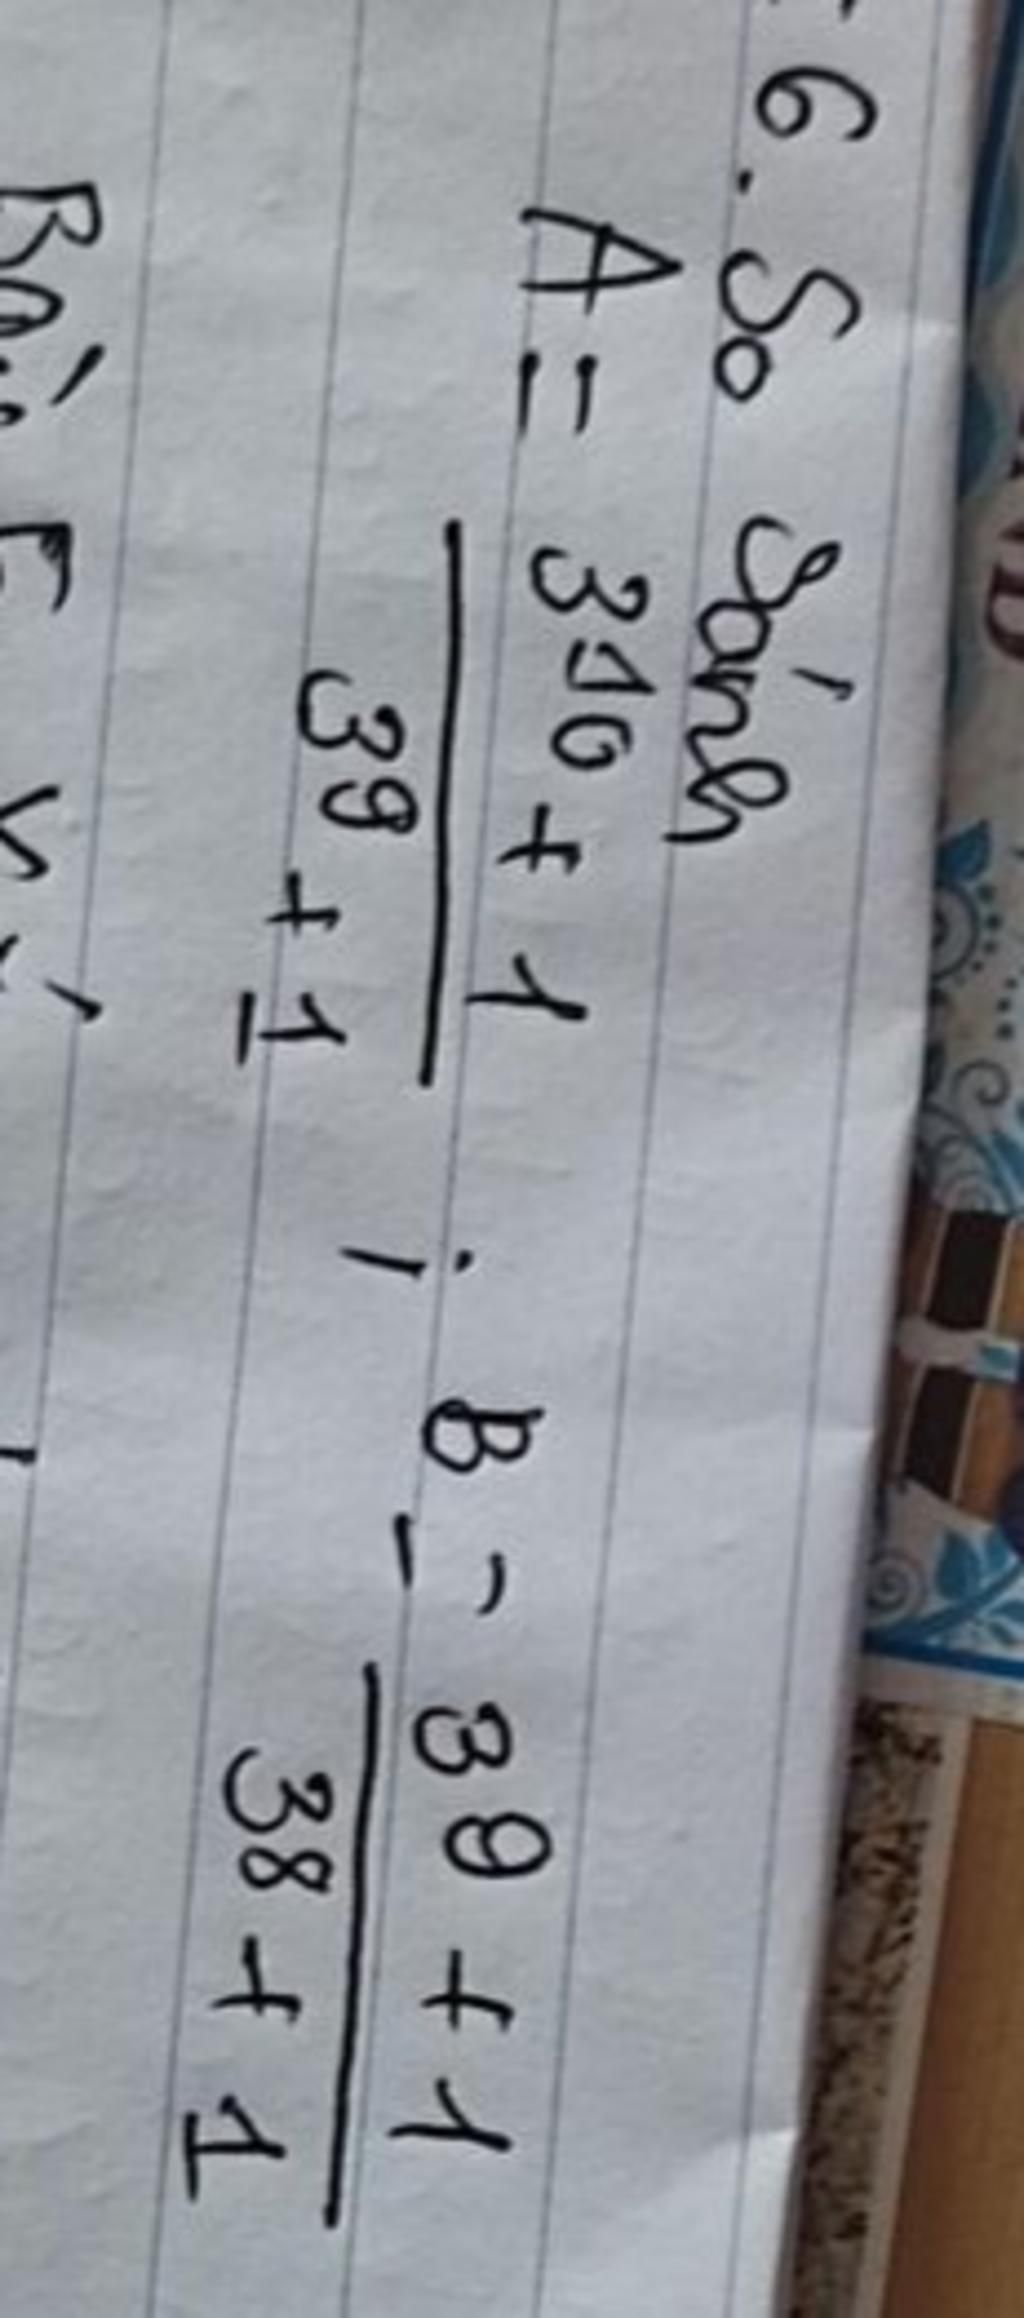 6. So sánh
A = \frac{3^{10} + 1}{3^9 + 1} ; B = \frac{3^9 + 1}{3^8 + 1}